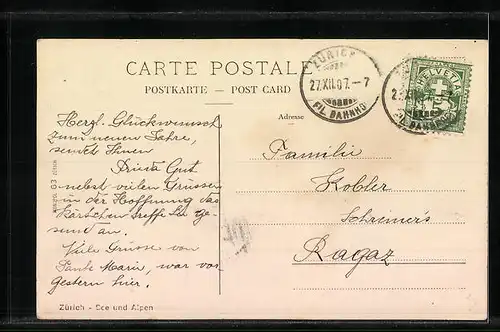 CARTE POSTALE
POSTKARTE — POST CARD
Adresse
ZÜRICH
27.XII.07.—7
FIL. BAHNHOF
HELVETIA
Herzl. Glückwunsch
zum neuen Jahre,
sendet Ihnen
Gut
nebst vielen Grüssen
in der Hoffnung das
Kärtchen treffe Sie ge-
sund an.
Viele Grüsse von
Tante Marie, war vor-
gestern hier.
Familie
Kobler
Schreiner's
Ragaz
Zürich - See und Alpen